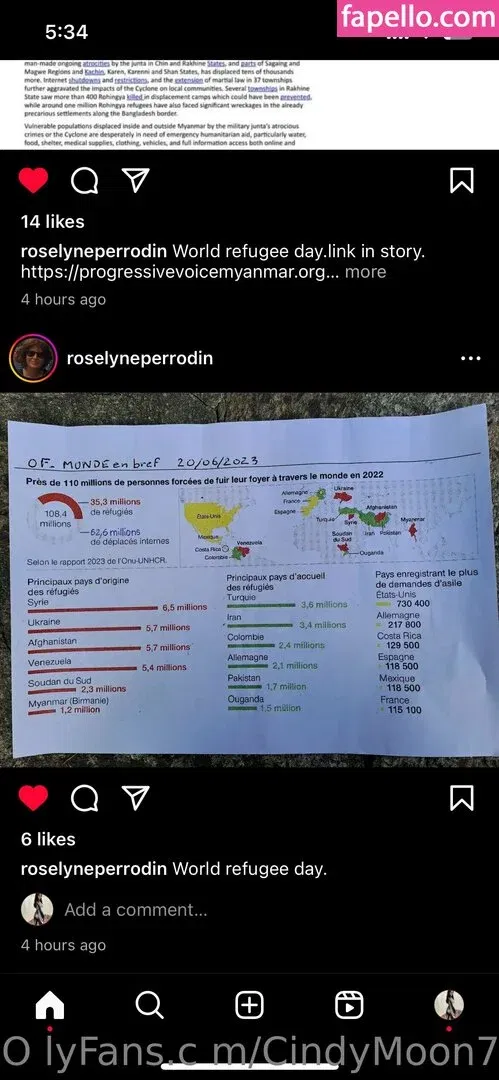 fapello.com
5:34
man-made ongoing atrocities by the junta in Chin and Rakhine States, and parts of Sagaing and
Magwe Regions and Kachin, Karen, Karenni and Shan States, has displaced tens of thousands
more. Internet shutdowns and restrictions, and the extension of martial law in 37 townships
further aggravated the impacts of the Cyclone on local communities. Several townships in Rakhine
State saw more than 400 Rohingya killed in displacement camps which could have been prevented,
while around one million Rohingya refugees have also faced significant wreckages in the already
precarious settlements along the Bangladesh border.
Vulnerable populations displaced inside and outside Myanmar by the military junta's atrocious
crimes or the Cyclone are desperately in need of emergency humanitarian aid, particularly water,
food, shelter, medical supplies, clothing, vehicles, and full information access both online and
14 likes
roselyneperrodin World refugee day.link in story.
https://progressivevoicemyanmar.org... more
4 hours ago
roselyneperrodin
OF- MUNDE en bref 20/06/2023
Près de 110 millions de personnes forcées de fuir leur foyer à travers le monde en 2022
108,4
millions
35,3 millions
de réfugiés
62,6 millions
de déplacés internes
Selon le rapport 2023 de l'Onu-UNHCR.
États-Unis
Mexique
Costa Rica
Colombie
Venezuela
Allemagne
France
Espagne
Ukraine
Turquie
Syrie
Afghanistan
Iran
Pakistan
Myanmar
Soudan
du Sud
Ouganda
Principaux pays d'origine
des réfugiés
Syrie
6,5 millions
Ukraine
5,7 millions
Afghanistan
5,7 millions
Venezuela
5,4 millions
Soudan du Sud
2,3 millions
Myanmar (Birmanie)
1,2 million
Principaux pays d'accueil
des réfugiés
Turquie
3,6 millions
Iran
3,4 millions
Colombie
2,4 millions
Allemagne
2,1 millions
Pakistan
1,7 million
Ouganda
1,5 million
Pays enregistrant le plus
de demandes d'asile
États-Unis
730 400
Allemagne
217 800
Costa Rica
129 500
Espagne
118 500
Mexique
118 500
France
115 100
6 likes
roselyneperrodin World refugee day.
Add a comment...
4 hours ago
O lyFans.c m/CindyMoon7